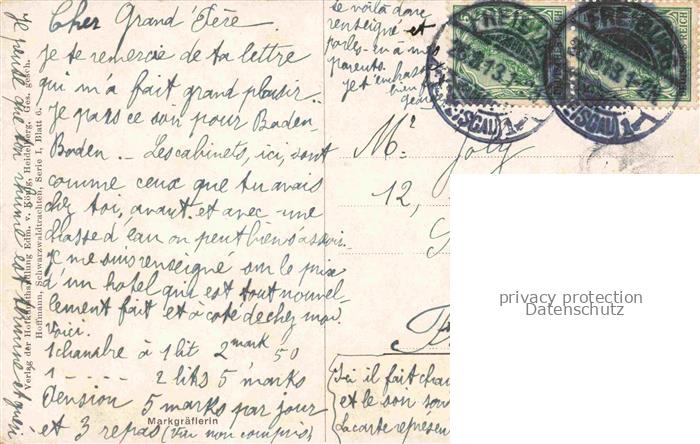 Cher Grand'Père
je te remercie de ta lettre
qui m'a fait grand plaisir.
Je pars ce soir pour Baden-
Baden. - Les cabinets, ici, sont
comme ceux que tu avais
chez toi, avant. et avec une
chasse d'eau on peut bien s'assoir.
Je me suis renseigné sur le prix
d'un hotel qui est tout nouvel-
lement fait et à coté de chez moi.
voici.
1 chambre à 1 lit 2 mark 50
1 - - - - - 2 lits 5 marks
Pension 5 marks par jour
et 3 repas (vin non compris)
te voilà donc
renseigné et
parles-en à mes
parents.
je t'embrasse
bien
Mr. Joly
12,
Ici il fait chau
et le soir son
La carte représen
FREIBURG
28.8.13.1-2N
(BREISGAU)
FREIBURG
28.8.13.1-2N
(BREISGAU)
Verlag der Hofkunsthandlung Edm. v. König, Heidelberg. Ges. gesch.
Hoffmann, Schwarzwaldtrachten, Serie I, Blatt 6.
Markgräflerin
privacy protection
Datenschutz